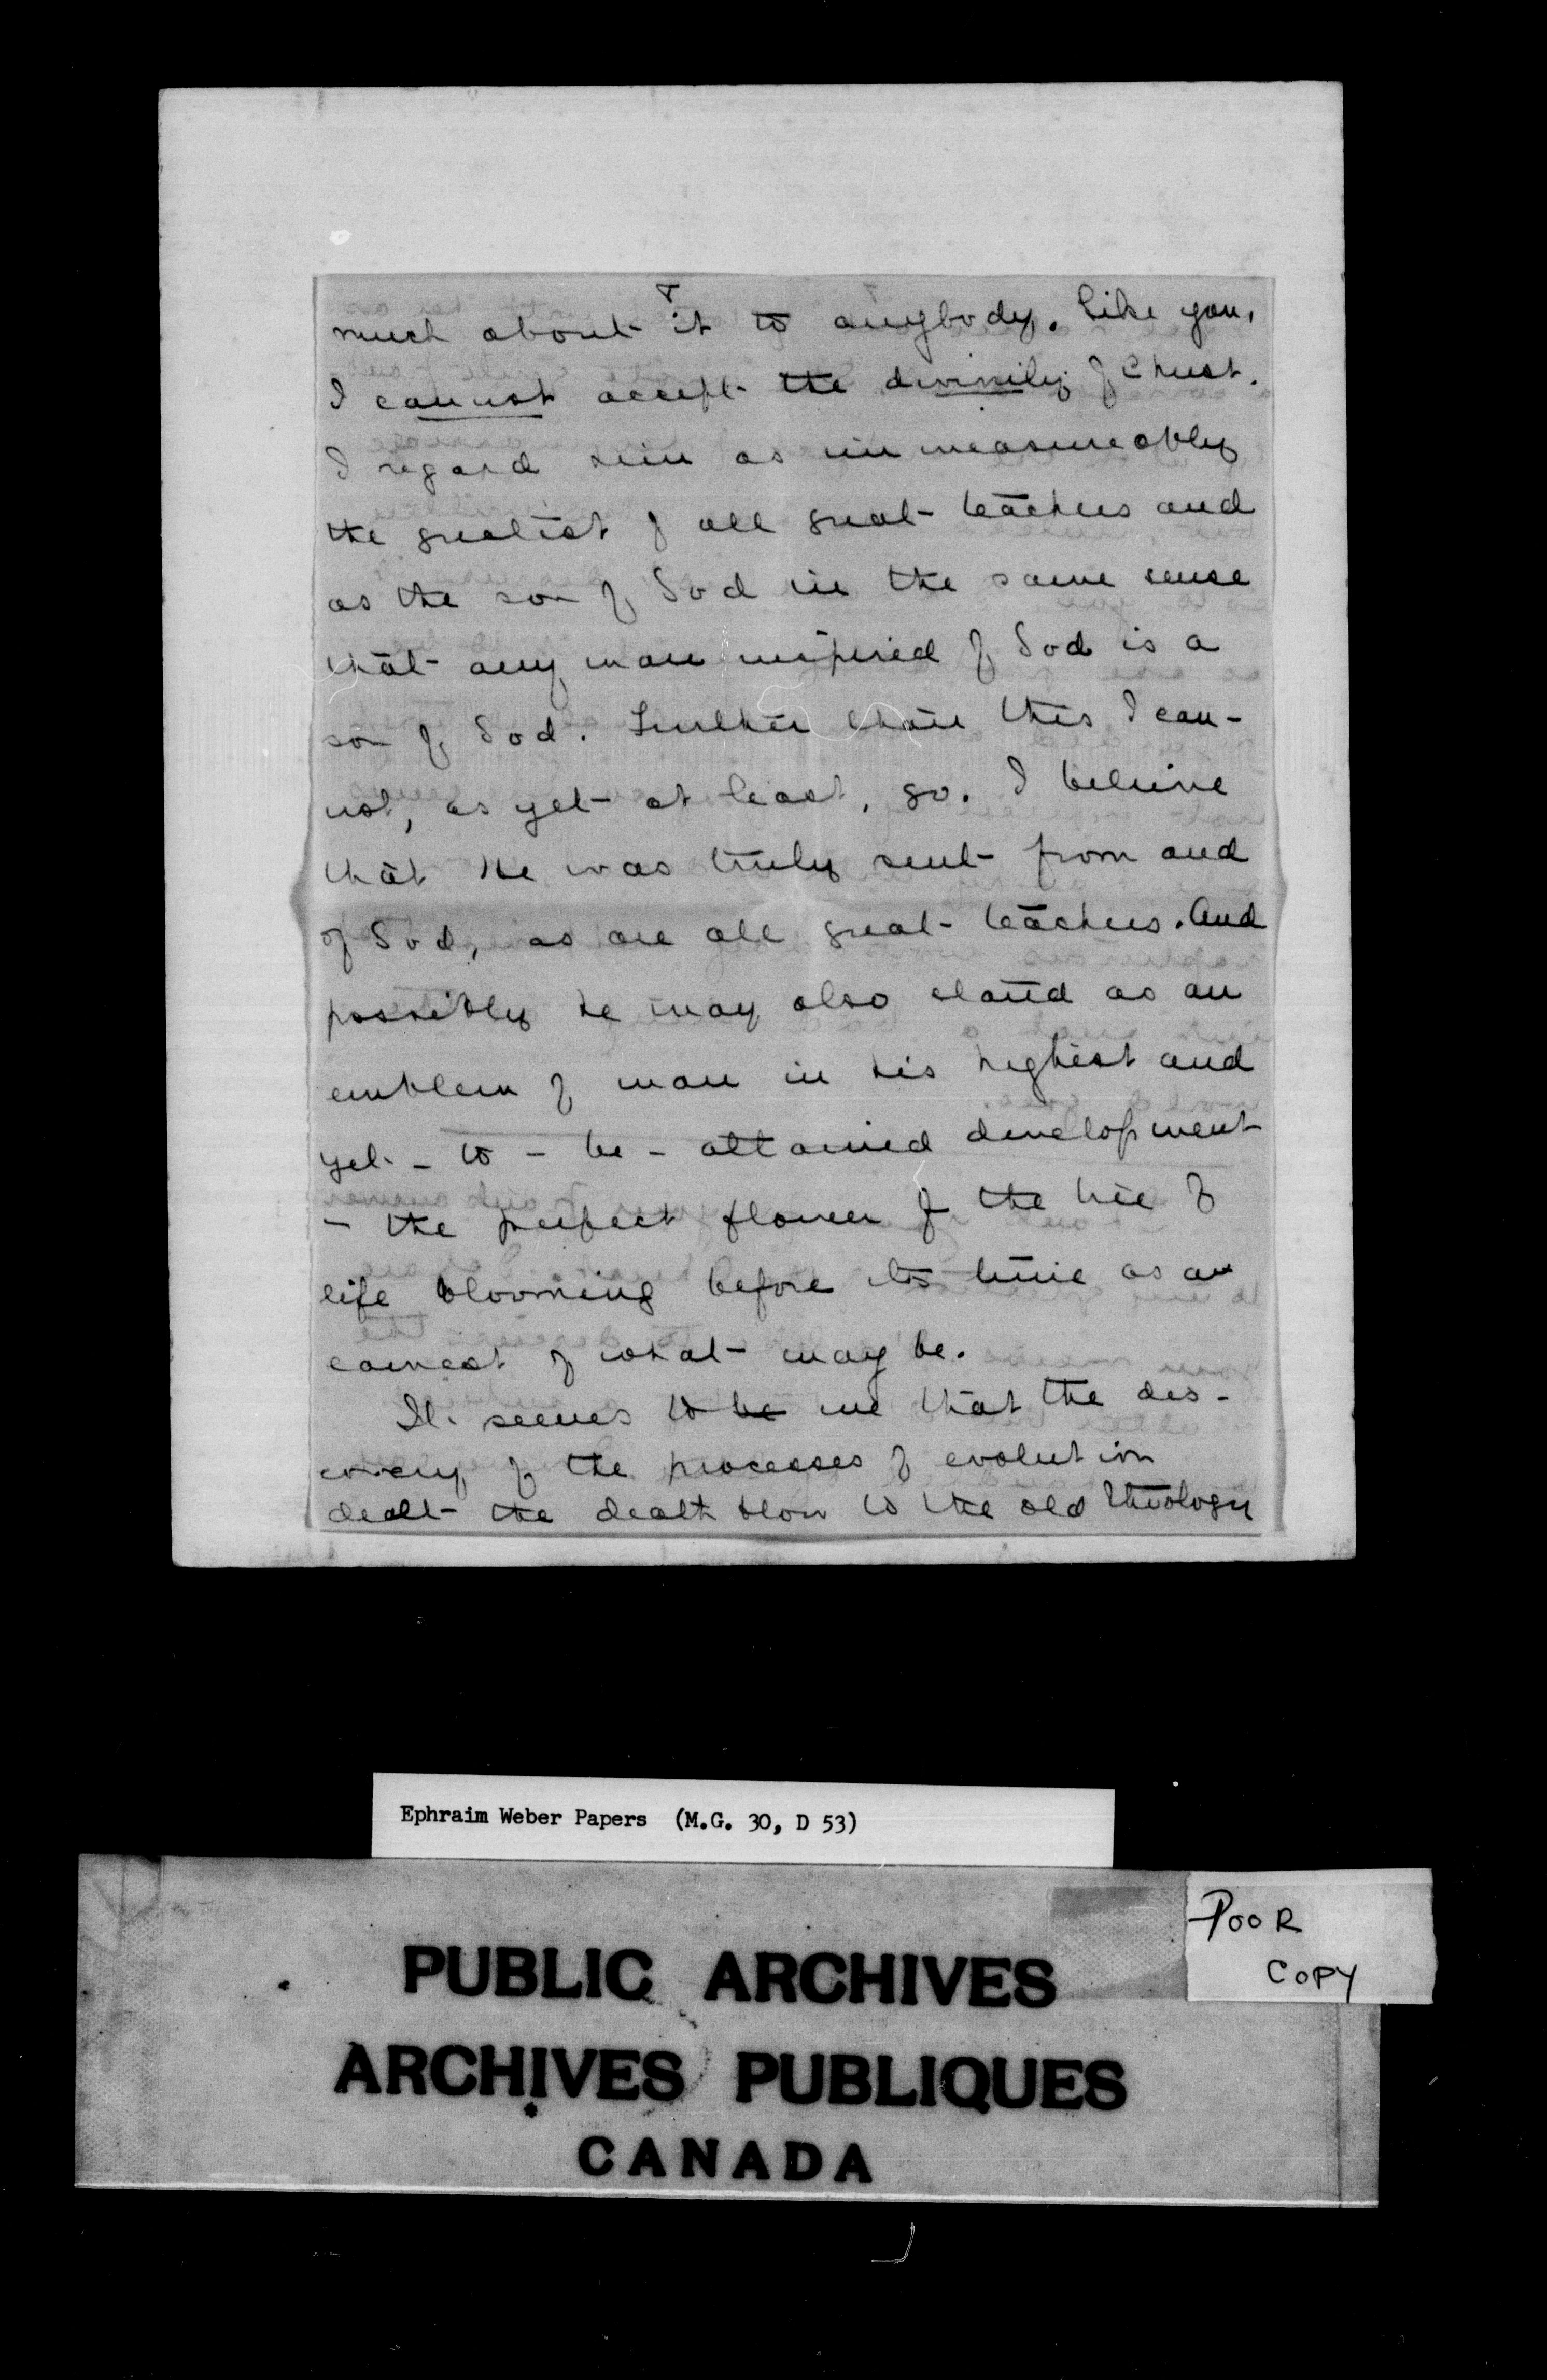 much about it to anybody. Like you,
I cannot accept the divinity of Christ.
I regard him as immeasureably
the greatest of all great teachers and
as the son of God in the same sense
that any man inspired of God is a
son of God. Further than this I can-
not, as yet at least, go. I believe
that he was truly sent from and
of God, as are all great teachers. And
possibly he may also stand as an
emblem of man in his highest and
yet-to-be-attained development
- the perfect flower of the tree of
life blooming before its time as an
earnest of what may be.
It seems to be me that the dis-
covery of the processes of evolution
dealt the death blow to the old theology
Ephraim Weber Papers (M.G. 30, D 53)
POOR
COPY
PUBLIC ARCHIVES
ARCHIVES PUBLIQUES
CANADA